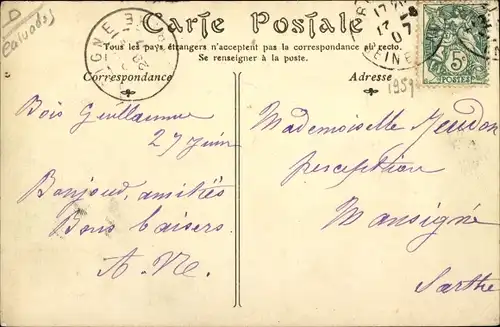 D
Calvados
Carte Postale
Tous les pays étrangers n'acceptent pas la correspondance au recto.
Se renseigner à la poste.
Correspondance
Adresse
1959
5c
POSTES
Bois Guillaume
27 Juin
Bonjour, amitiés
Bons baisers
Mademoiselle
perception
Mansigné
Sarthe